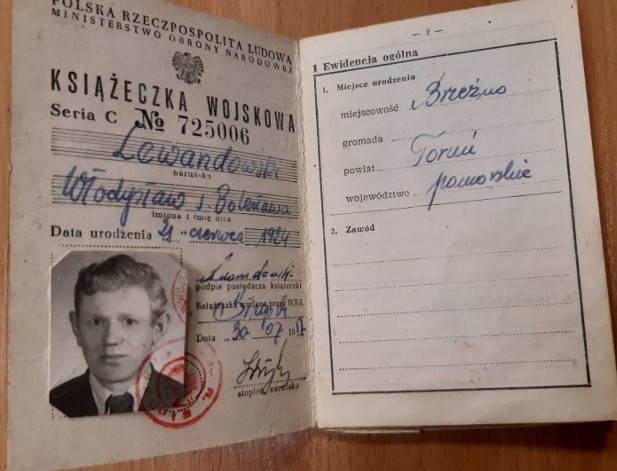 POLSKA RZECZPOSPOLITA LUDOWA
MINISTERSTWO OBRONY NARODOWEJ
KSIĄŻECZKA WOJSKOWA
Seria C № 725006
Lewandowski
nazwisko
Władysław s. Bolesława
imiona i imię ojca
Data urodzenia 21 czerwca 1924
podpis posiadacza książeczki
Książeczka wydana przez WKR
Dnia 30 07 19
stopień, nazwisko
— 2 —
I Ewidencja ogólna
1. Miejsce urodzenia
miejscowość Brzeźno
gromada
powiat Toruń
województwo pomorskie
2. Zawód